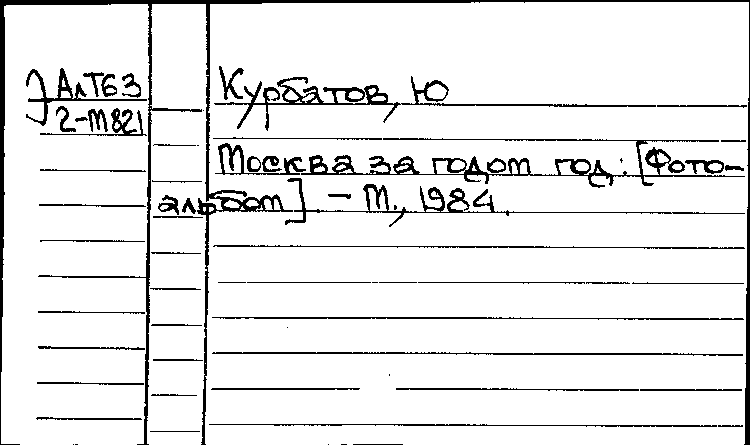 АлТ63
2-М821
Курбатов, Ю
Москва за годом год: [Фото-
альбом]. - М., 1984.